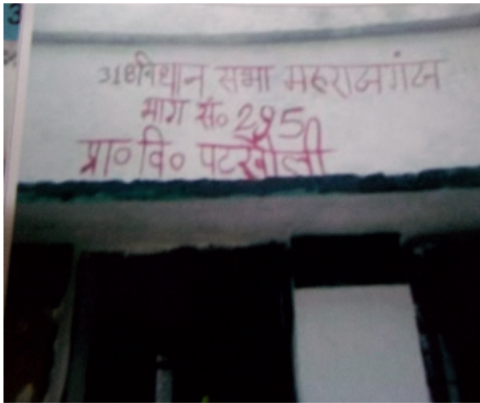 318विधान सभा महराजगंज
भाग सं० 295
प्रा० वि० पटखौली